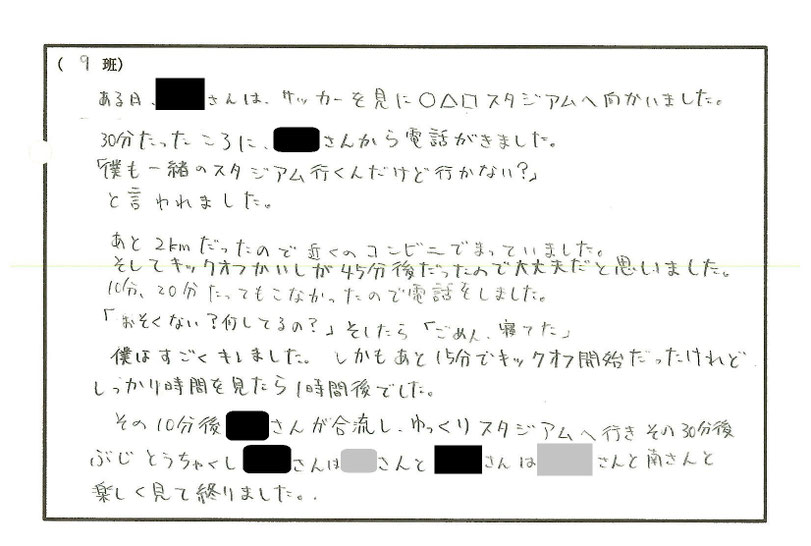 ( 9 班)
ある日、さんは、サッカーを見に○△□スタジアムへ向かいました。
30分たったころに、さんから電話がきました。
「僕も一緒のスタジアム行くんだけど行かない?」
と言われました。
あと2kmだったので近くのコンビニでまっていました。
そしてキックオフかいしが45分後だったので大丈夫だと思いました。
10分、20分たってもこなかったので電話をしました。
「おそくない?何してるの?」そしたら「ごめん、寝てた」
僕はすごくキレました。しかもあと15分でキックオフ開始だったけれど
しっかり時間を見たら1時間後でした。
その10分後さんが合流し、ゆっくりスタジアムへ行きその30分後
ぶじとうちゃくしさんはさんとさんはさんと南さんと
楽しく見て終りました。.